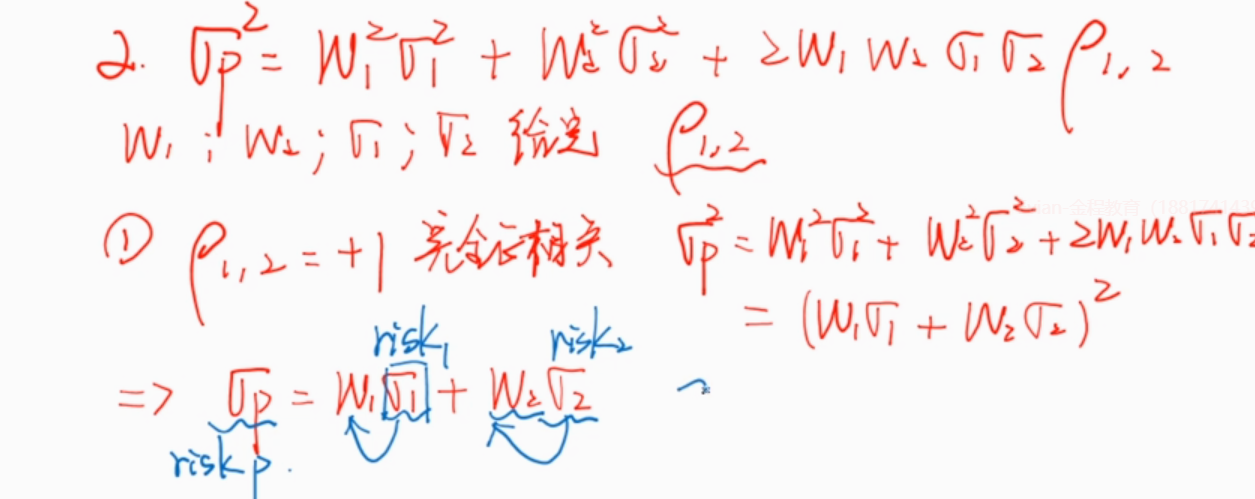 2. σp² = W₁²σ₁² + W₂²σ₂² + 2W₁W₂σ₁σ₂ρ₁,₂
W₁; W₂; σ₁; σ₂ 给定 ρ₁,₂
① ρ₁,₂ = +1 完全正相关 σp² = W₁²σ₁² + W₂²σ₂² + 2W₁W₂σ₁σ₂
= (W₁σ₁ + W₂σ₂)²
risk₁ risk₂
=> σp = W₁σ₁ + W₂σ₂
risk p.